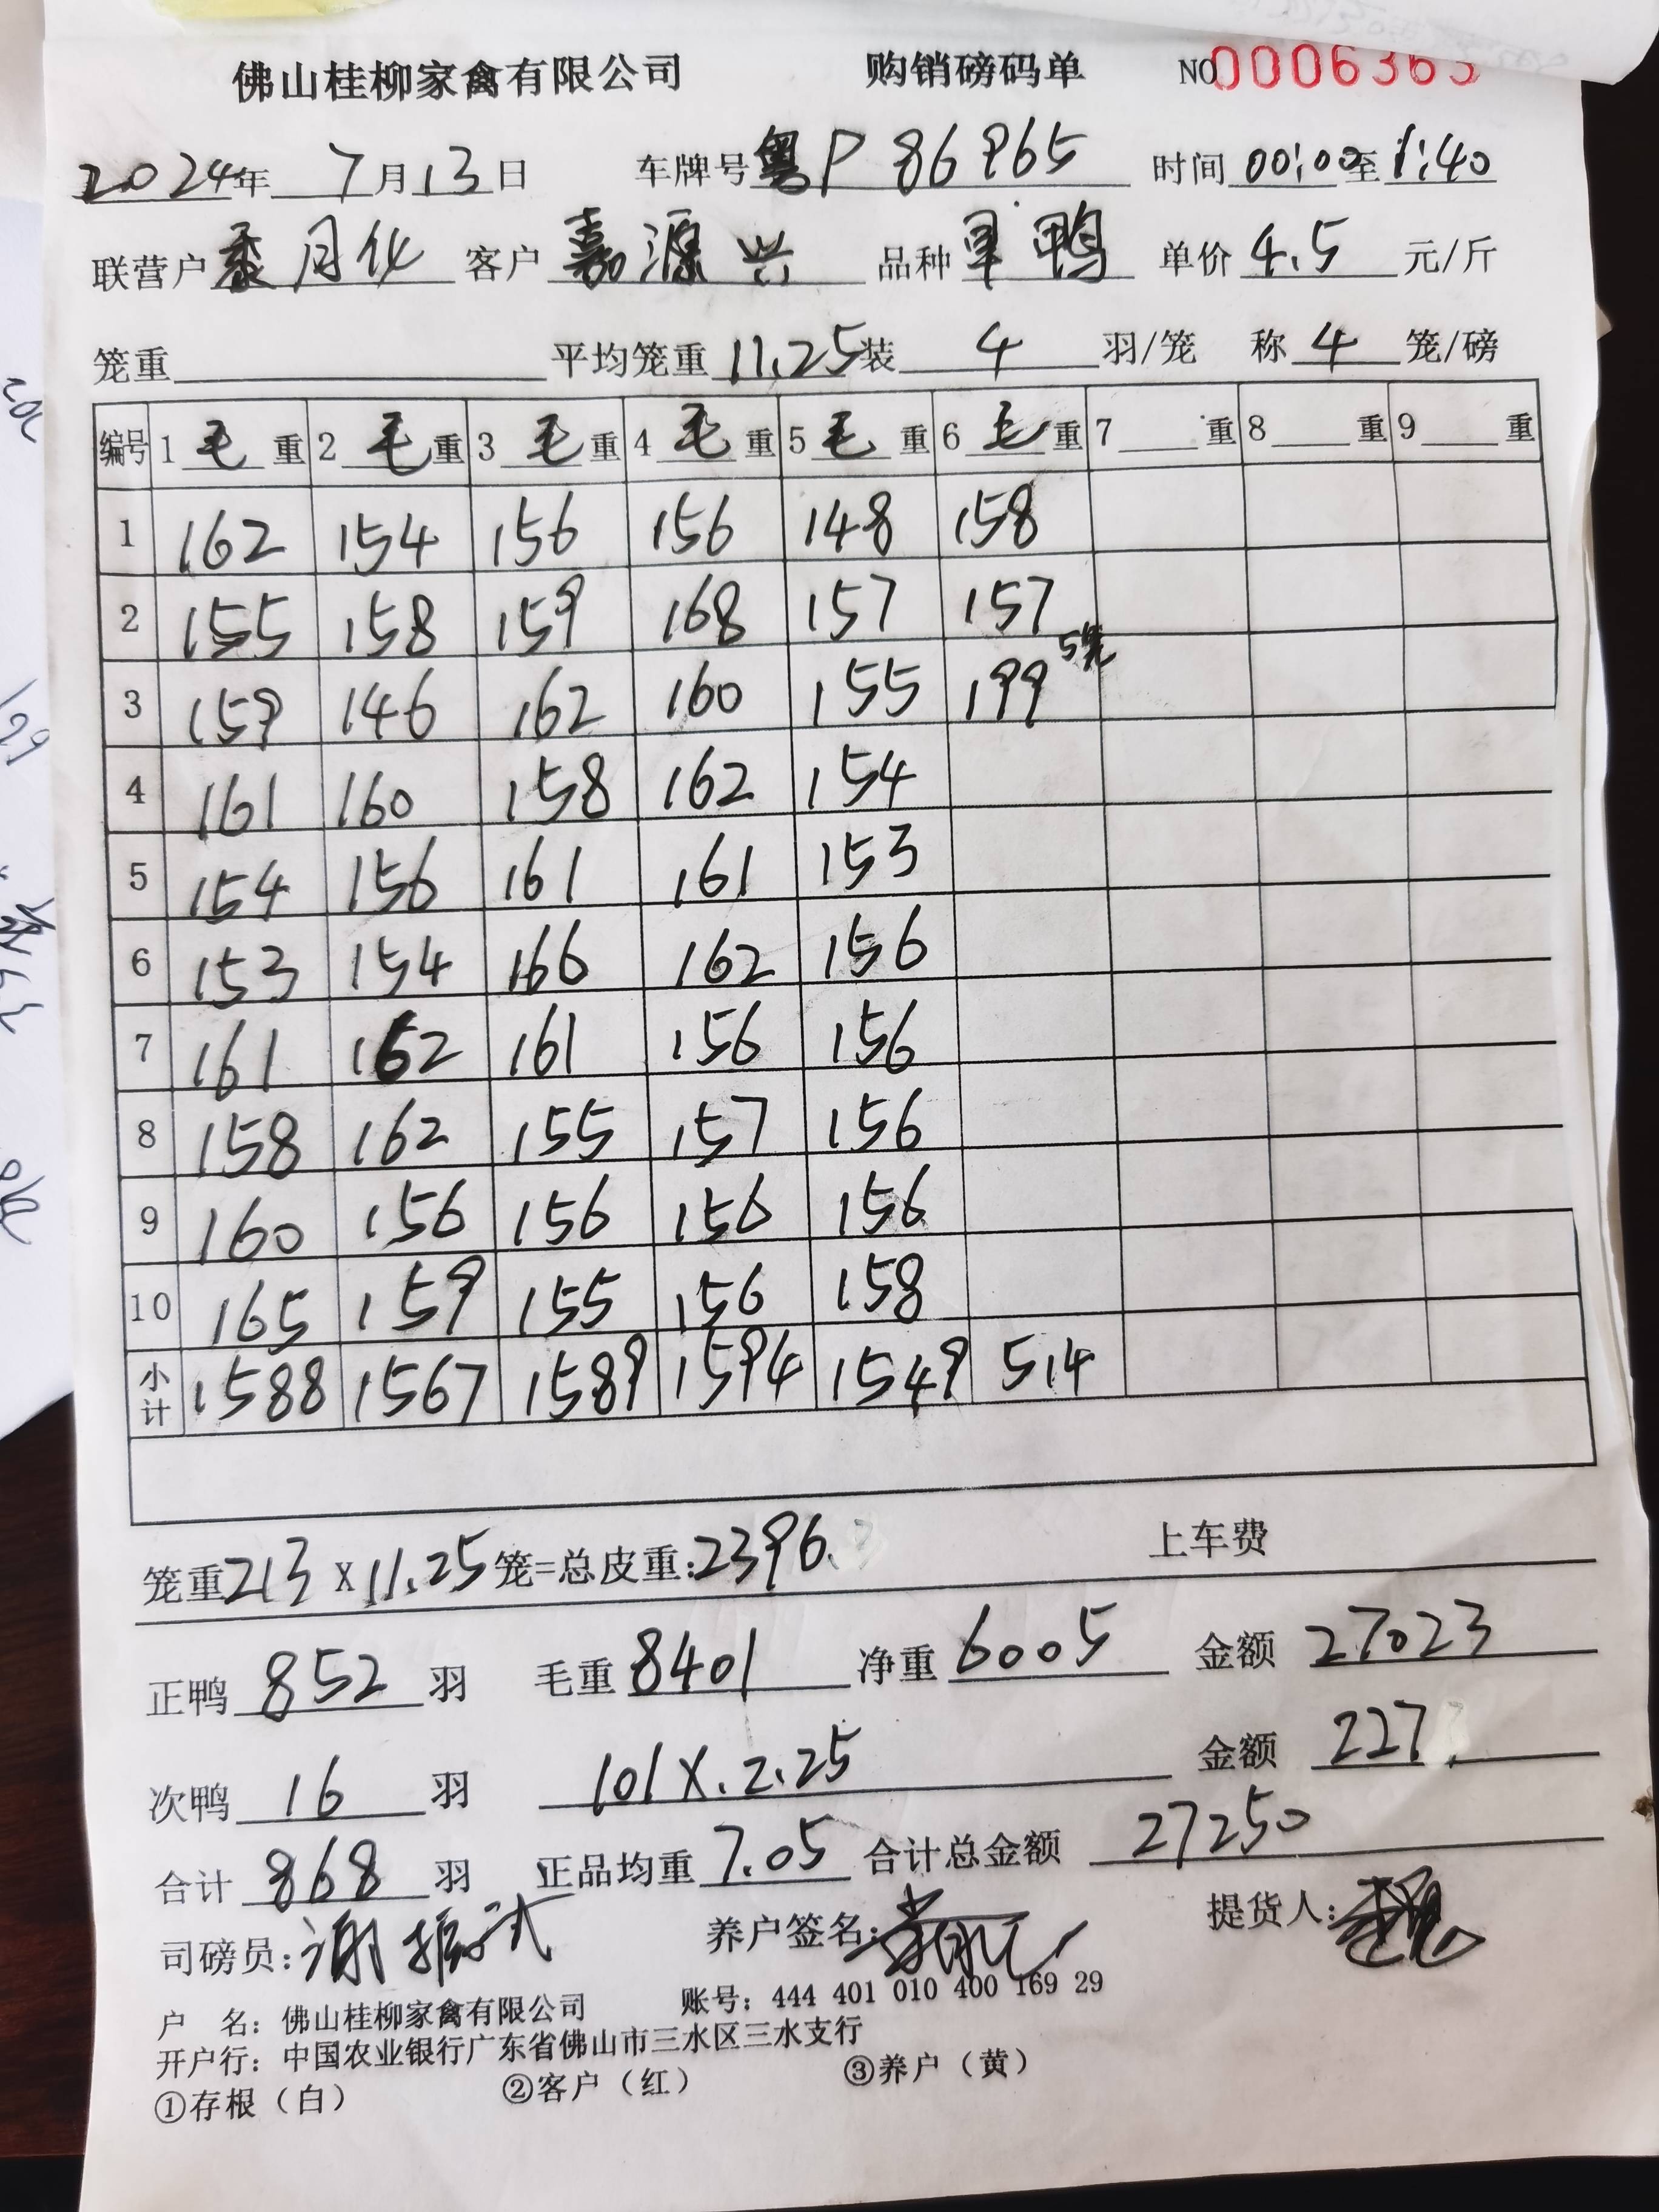 佛山桂柳家禽有限公司 购销磅码单 NO0006363
2024年 7月13日 车牌号粤P86965 时间00:00至1:40
联营户 月 客户嘉源兴 品种 鸭 单价4.5元/斤
笼重 平均笼重11.25装4羽/笼 称4笼/磅
编号 1毛重 2毛重 3毛重 4毛重 5毛重 6毛重 7重 8重 9重
1 162 154 156 156 148 158
2 155 158 159 168 157 157
3 159 146 162 160 155 199 5笼
4 161 160 158 162 154
5 154 156 161 161 153
6 153 154 166 162 156
7 161 162 161 156 156
8 158 162 155 157 156
9 160 156 156 156 156
10 165 159 155 156 158
小计 1588 1567 1589 1594 1549 514
笼重213X11.25笼=总皮重:2396. 上车费
正鸭852羽 毛重8401 净重6005 金额27023
次鸭16羽 101X.2.25 金额227.
合计868羽 正品均重7.05 合计总金额27250
司磅员:谢振 养户签名: 提货人:
户 名:佛山桂柳家禽有限公司 账号:444 401 010 400 169 29
开户行:中国农业银行广东省佛山市三水区三水支行
①存根（白） ②客户（红） ③养户（黄）